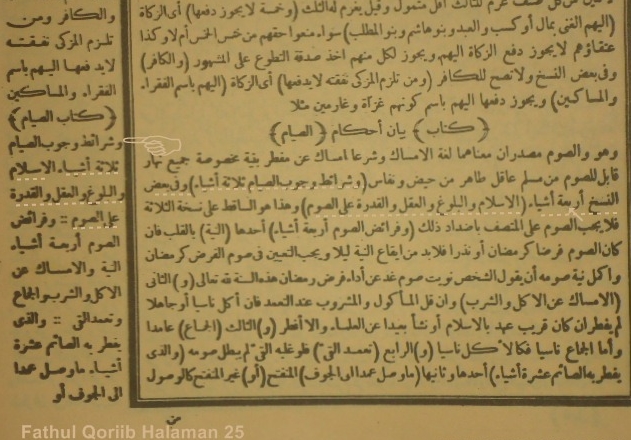 (اليهم الغنى بمال أو كسب والعبد وبنو هاشم وبنو المطلب) سواء منعوا حقهم من خمس الخمس أم لا وكذا
عتقاؤهم لا يجوز دفع الزكاة اليهم ويجوز لكل منهم اخذ صدقة التطوع على المشهور (والكافر)
وفى بعض النسخ ولا تصح للكافر (ومن تلزم المزكى نفقته لا يدفعها) أى الزكاة (اليهم باسم الفقراء
والمساكين) ويجوز دفعها اليهم باسم كونهم غزاة وغارمين مثلا
﴿كتاب﴾ بيان أحكام ﴿الصيام﴾
وهو والصوم مصدران معناهما لغة الامساك وشرعا امساك عن مفطر بنية مخصوصة جميع نهار
قابل للصوم من مسلم عاقل طاهر من حيض ونفاس (وشرائط وجوب الصيام ثلاثة أشياء) وفى بعض
النسخ أربعة أشياء (الاسلام والبلوغ والعقل والقدرة على الصوم) وهذا هو الساقط على نسخة الثلاثة
فلا يجب الصوم على المتصف باضداد ذلك (وفرائض الصوم أربعة أشياء) أحدها (النية) بالقلب فان
كان الصوم فرضا كرمضان أو نذرا فلا بد من ايقاع النية ليلا ويجب التعيين فى صوم الفرض كرمضان
وأكمل نية صومه أن يقول الشخص نويت صوم غد عن أداء فرض رمضان هذه السنة لله تعالى (و) الثانى
(الامساك عن الاكل والشرب) وان قل المأكول والمشروب عند التعمد فان أكل ناسيا أو جاهلا
لم يفطر ان كان قريب عهد بالاسلام أو نشأ بعيدا عن العلماء والا أفطر (و) الثالث (الجماع) عامدا
وأما الجماع ناسيا فكالاكل ناسيا (و) الرابع (تعمد القىء) فلو غلبه القىء لم يبطل صومه (والذى
يفطر به الصائم عشرة أشياء) أحدها وثانيها (ما وصل عمدا الى الجوف) المنفتح (أو) غير المنفتح كالوصول
من
والكافر ومن
تلزم المزكى نفقته
لا يدفعها اليهم باسم
الفقراء والمساكين
﴿كتاب الصيام﴾
وشرائط وجوب الصيام
ثلاثة أشياء الاسلام
والبلوغ والعقل والقدرة
على الصوم :: وفرائض
الصوم أربعة أشياء
النية والامساك عن
الاكل والشرب والجماع
وتعمد القىء :: والذى
يفطر به الصائم عشرة
أشياء ما وصل عمدا
الى الجوف أو
Fathul Qoriib Halaman 25